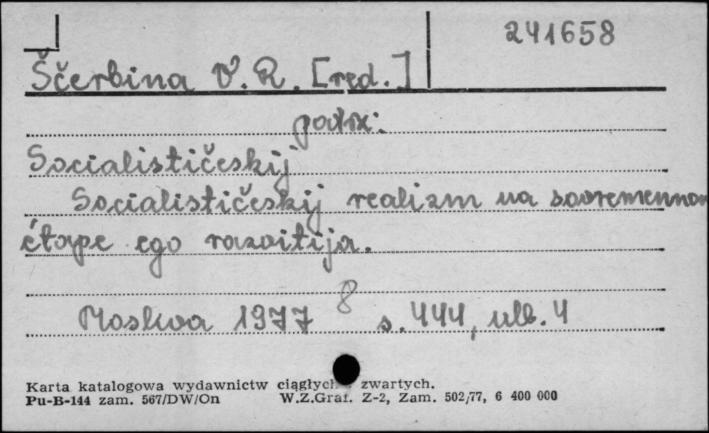 241658
Ščerbina V. R. [red.]
patrz:
Socialističeskij
Socialističeskij realizm na sovremennom
étape ego razvitija.
8
Moskva 1977 s. 444, nlb. 4
Karta katalogowa wydawnictw ciągłych zwartych.
Pu-B-144 zam. 567/DW/On W.Z.Graf. Z-2, Zam. 502/77, 6 400 000